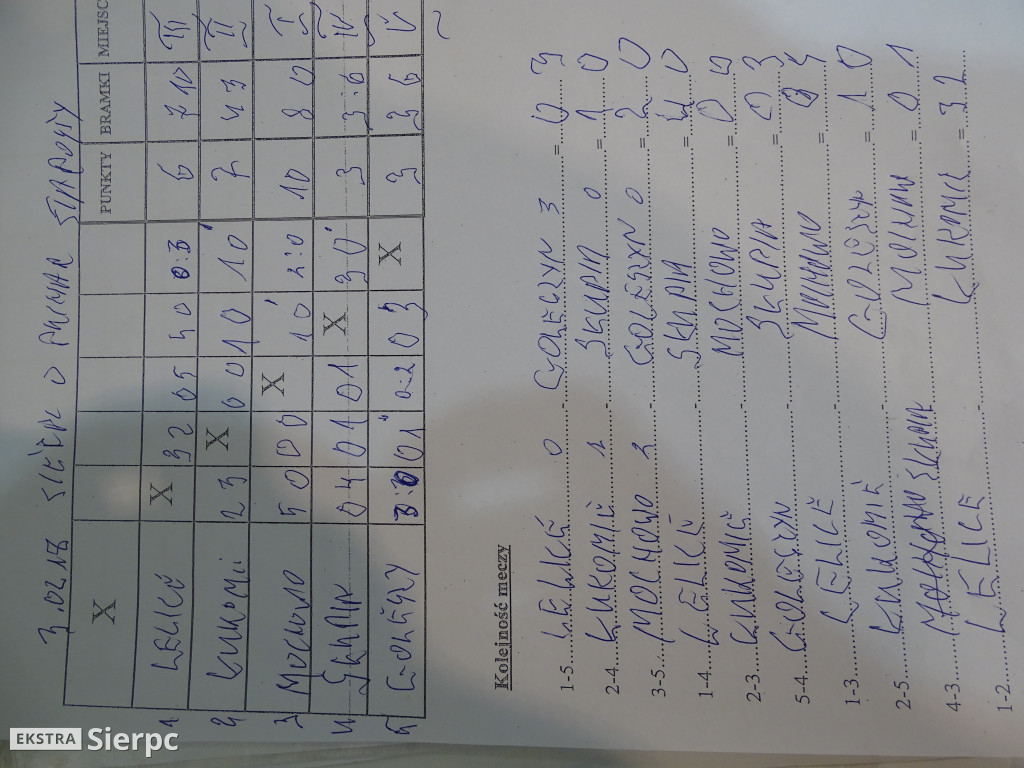 3.02.18 SIERPC O PUCHAR STAROSTY
X PUNKTY BRAMKI MIEJSC
1 LELICE X 3 2 0 5 4 0 0:3 6 7 10 III
2 2 3 X 0 0 1 0 1 0 7 4 3 II
3 MOCHOWO 5 0 0 0 X 1 0 2:0 10 8 0 I
4 SKUPIA 0 4 0 1 0 1 X 3 0 3 3:6 IV
5 3:0 0 1 0:2 0 3 X 3 3 6 V
Kolejność meczy
1-5 LELICE 0 - GOLESZYN 3 = 0 3
2-4 1 - SKUPIA 0 = 1 0
3-5 MOCHOWO 2 - GOLESZYN 0 = 2 0
1-4 LELICE - SKUPIA = 4 0
2-3 - MOCHOWO = 0 0
5-4 GOLESZYN - SKUPIA = 0 3
1-3 LELICE - MOCHOWO = 0
2-5 - GOLESZYN = 1 0
4-3 SKUPIA - MOCHOWO = 0 1
1-2 LELICE - = 3 2
EKSTRA Sierpc